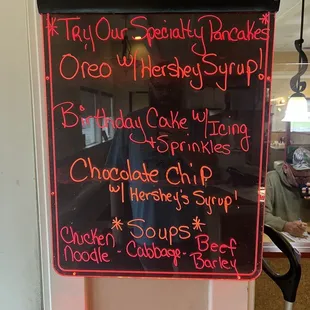 *Try Our Specialty Pancakes*
Oreo w/ Hershey Syrup!
Birthday Cake w/ Icing
+ Sprinkles
Chocolate Chip
w/ Hershey's Syrup!
*Soups*
Chicken Noodle - Cabbage - Beef Barley